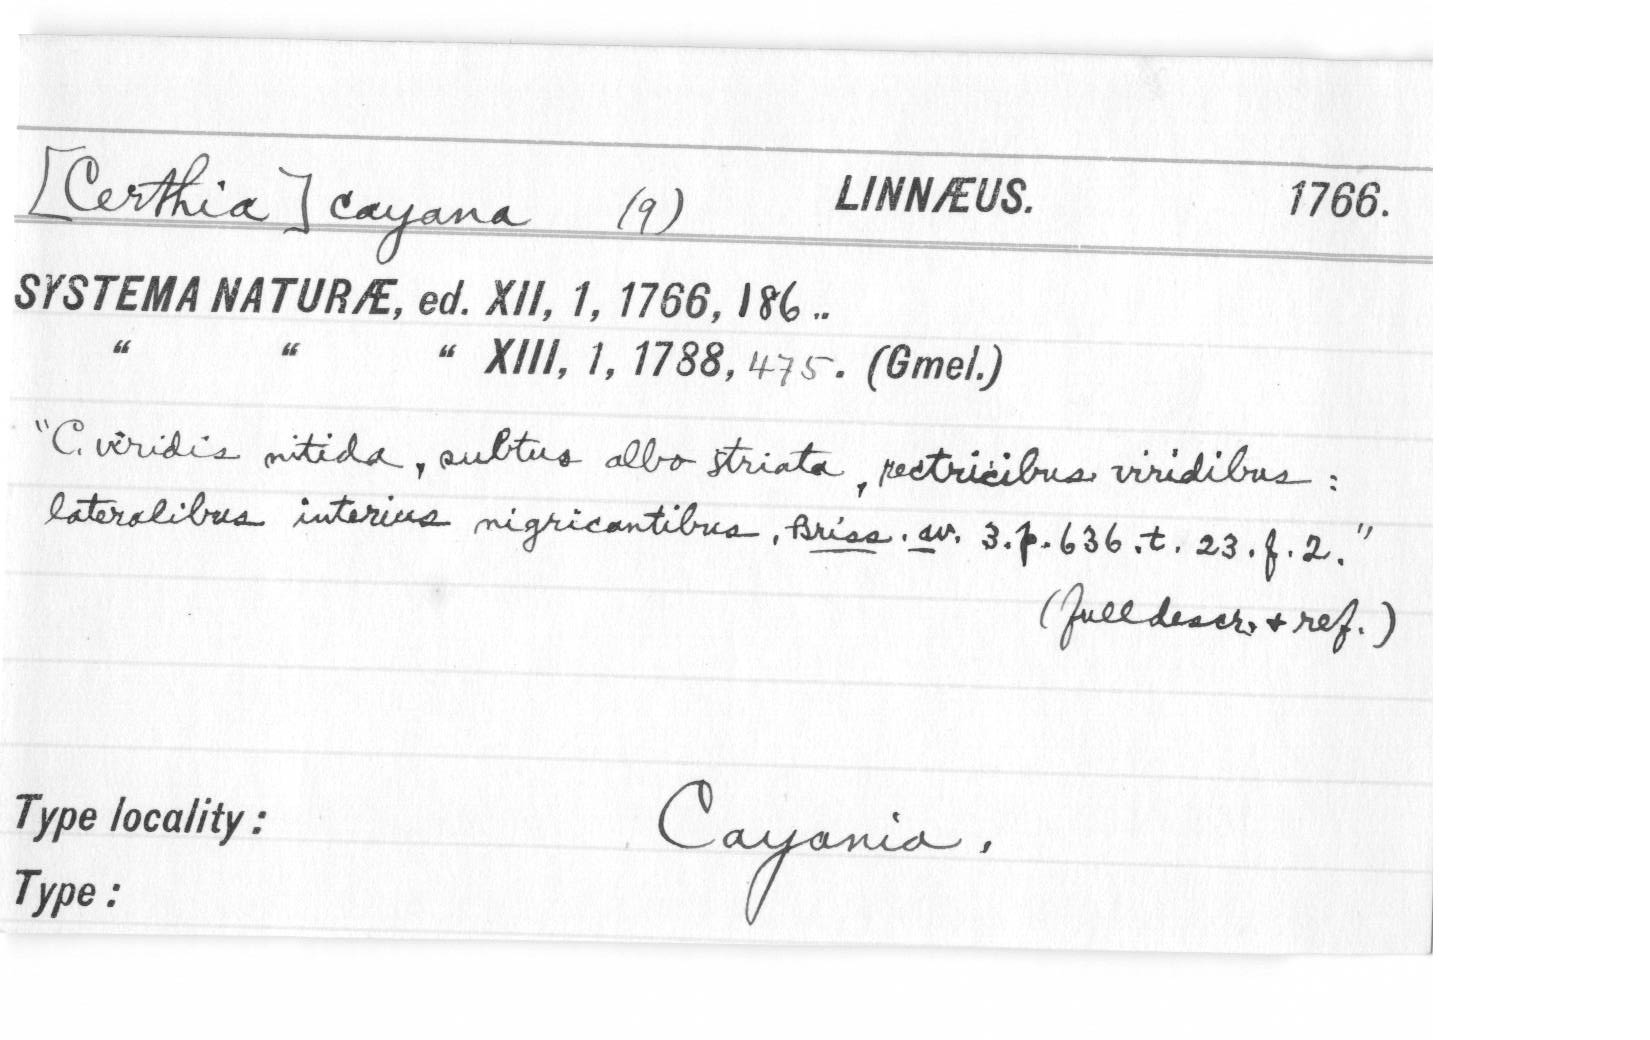 [Certhia] cayana (9) LINNÆUS. 1766.
SYSTEMA NATURÆ, ed. XII, 1, 1766, 186..
“ “ “ XIII, 1, 1788, 475. (Gmel.)
"C. viridis nitida, subtus albo striata, rectricibus viridibus:
lateralibus interius nigricantibus, Briss. av. 3.p.636.t.23.f.2."
(full descr. + ref.)
Type locality: Cayania.
Type: